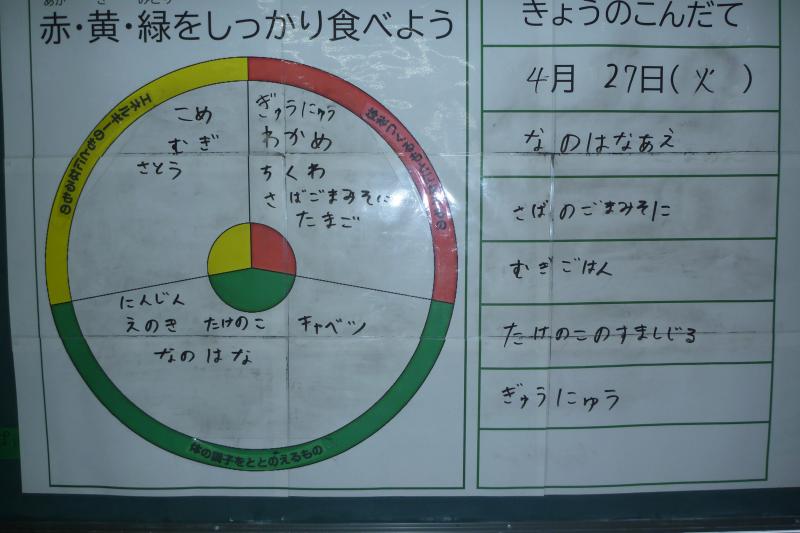 あか き みどり
赤・黄・緑をしっかり食べよう
エネルギーのもとになるもの
こめ
むぎ
さとう
ぎゅうにゅう
わかめ
ちくわ
さばごまみそに
たまご
にんじん
えのき たけのこ キャベツ
なのはな
体の調子をととのえるもの
きょうのこんだて
4月 27日(火)
なのはなあえ
さばのごまみそに
むぎごはん
たけのこのすましじる
ぎゅうにゅう